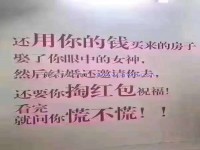 还用你的钱买来的房子
娶了你眼中的女神，
然后结婚还邀请你去，
还要你掏红包祝福！
看完
就问你慌不慌！！